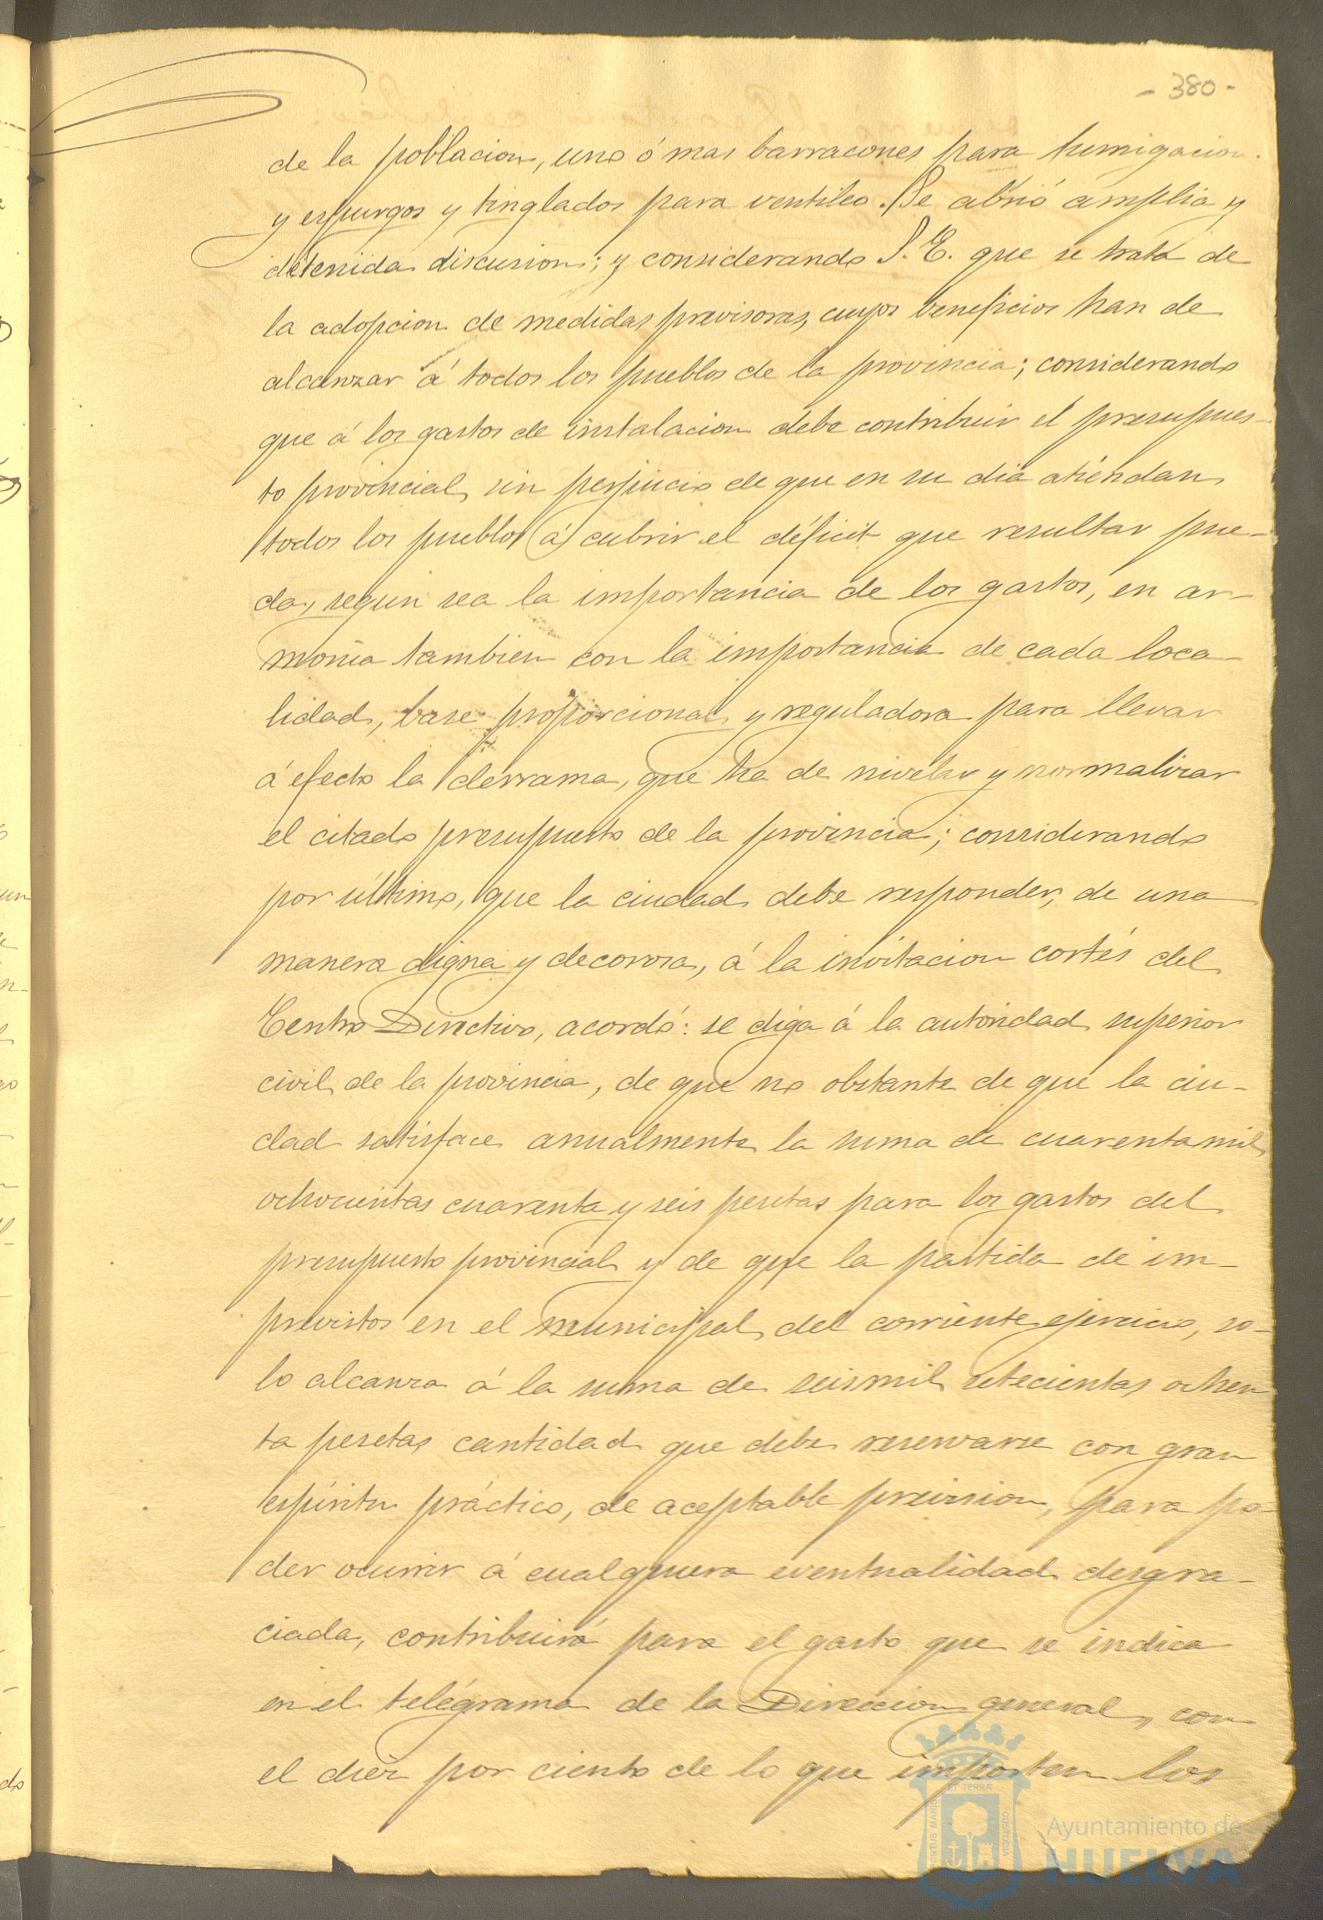 - 380 -
de la poblacion, uno ó mas barracones para humigacion
y espurgos y tinglados para ventileo. Se abrió amplia y
detenida discusion; y considerando S. E. que se trata de
la adopcion de medidas previsoras, cuyos beneficios han de
alcanzar á todos los pueblos de la provincia; considerando
que á los gastos de instalacion debe contribuir el presupues-
to provincial, sin perjuicio de que en su dia atiendan
todos los pueblos á cubrir el déficit que resultar pue-
da, segun sea la importancia de los gastos, en ar-
monia tambien con la importancia de cada loca-
lidad, base proporcional y reguladora para llevar
á efecto la derrama, que ha de nivelar y normalizar
el citado presupuesto de la provincia; considerando
por último, que la ciudad debe responder, de una
manera digna y decorosa, á la invitacion cortés del
Centro Directivo, acordó: se diga á la autoridad superior
civil de la provincia, de que no obstante de que la ciu-
dad satisface anualmente la suma de cuarenta mil
ochocientas cuarenta y seis pesetas para los gastos del
presupuesto provincial y de que la partida de im-
previstos en el municipal del corriente ejercicio, so-
lo alcanza á la suma de seismil setecientas ochen
ta pesetas cantidad que debe reservarse con gran
espíritu práctico, de aceptable prevision, para po-
der ocurrir á cualquiera eventualidad desgra-
ciada, contribuirá para el gasto que se indica
en el telégrama de la Direccion general, con
el diez por ciento de lo que importen los
Ayuntamiento de
HUELVA